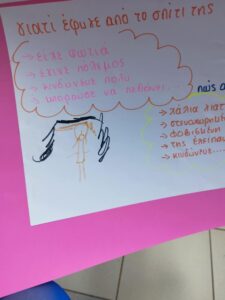 γιατί έφυγε από το σπίτι της
→ είχε φωτιά
→ έγινε πόλεμος
→ κινδύνευε πολύ
→ μπορούσε να πεθάνει....
πώς α
→ χάλια
→ στεναχωρημ
→ φοβισμένη
→ της έλειπαν
→ κινδύνευε....